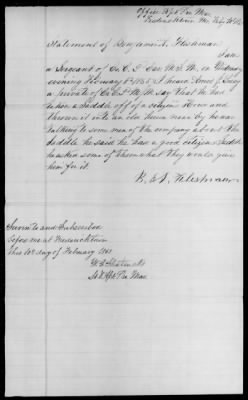 Office Asst Pro Mar
Fredericktown Mo Feby 10th
Statement of Benjamin A. Fleshman
I am
a Sergeant of Co. C 3d Cav M.S.M. on
evening February 8th 1865 I heard
a private of Co C 3d M.S.M say that he had
taken a Saddle off of a citizens Horse and
thrown it into an old house near by he was
talking to some men of the company about the
saddle he said he had a good citizens Saddle
he asked some of them what they would give
him for it.
B. A. Fleshman
Sworn to and Subscribed
before me at Fredericktown
this 10th day of February 1865
Asst Pro Mar